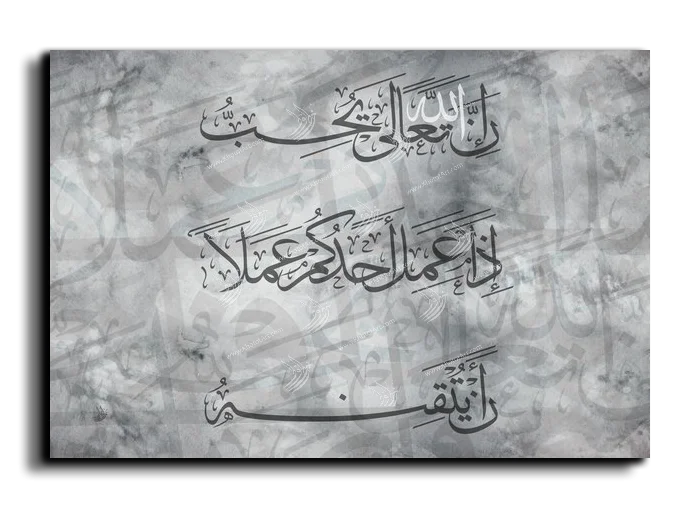 إِنَّ اللَّهَ تَعَالَى يُحِبُّ
إِذَا عَمِلَ أَحَدُكُمْ عَمَلًا
أَنْ يُتْقِنَهُ